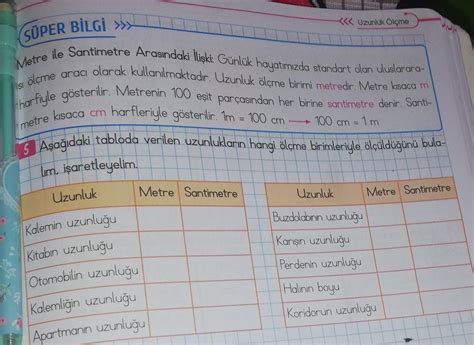 Uzunluk Ölçme
SÜPER BİLGİ
Metre ile Santimetre Arasındaki İlişki: Günlük hayatımızda standart olan uluslarara-
sı ölçme aracı olarak kullanılmaktadır. Uzunluk ölçme birimi metredir. Metre kısaca m
harfiyle gösterilir. Metrenin 100 eşit parçasından her birine santimetre denir. Santi-
metre kısaca cm harfleriyle gösterilir. 1m = 100 cm → 100 cm = 1 m
5 Aşağıdaki tabloda verilen uzunlukların hangi ölçme birimleriyle ölçüldüğünü bula-
lım, işaretleyelim.
Uzunluk Metre Santimetre
Kalemin uzunluğu
Kitabın uzunluğu
Otomobilin uzunluğu
Kalemliğin uzunluğu
Apartmanın uzunluğu
Uzunluk Metre Santimetre
Buzdolabının uzunluğu
Karışın uzunluğu
Perdenin uzunluğu
Halının boyu
Koridorun uzunluğu